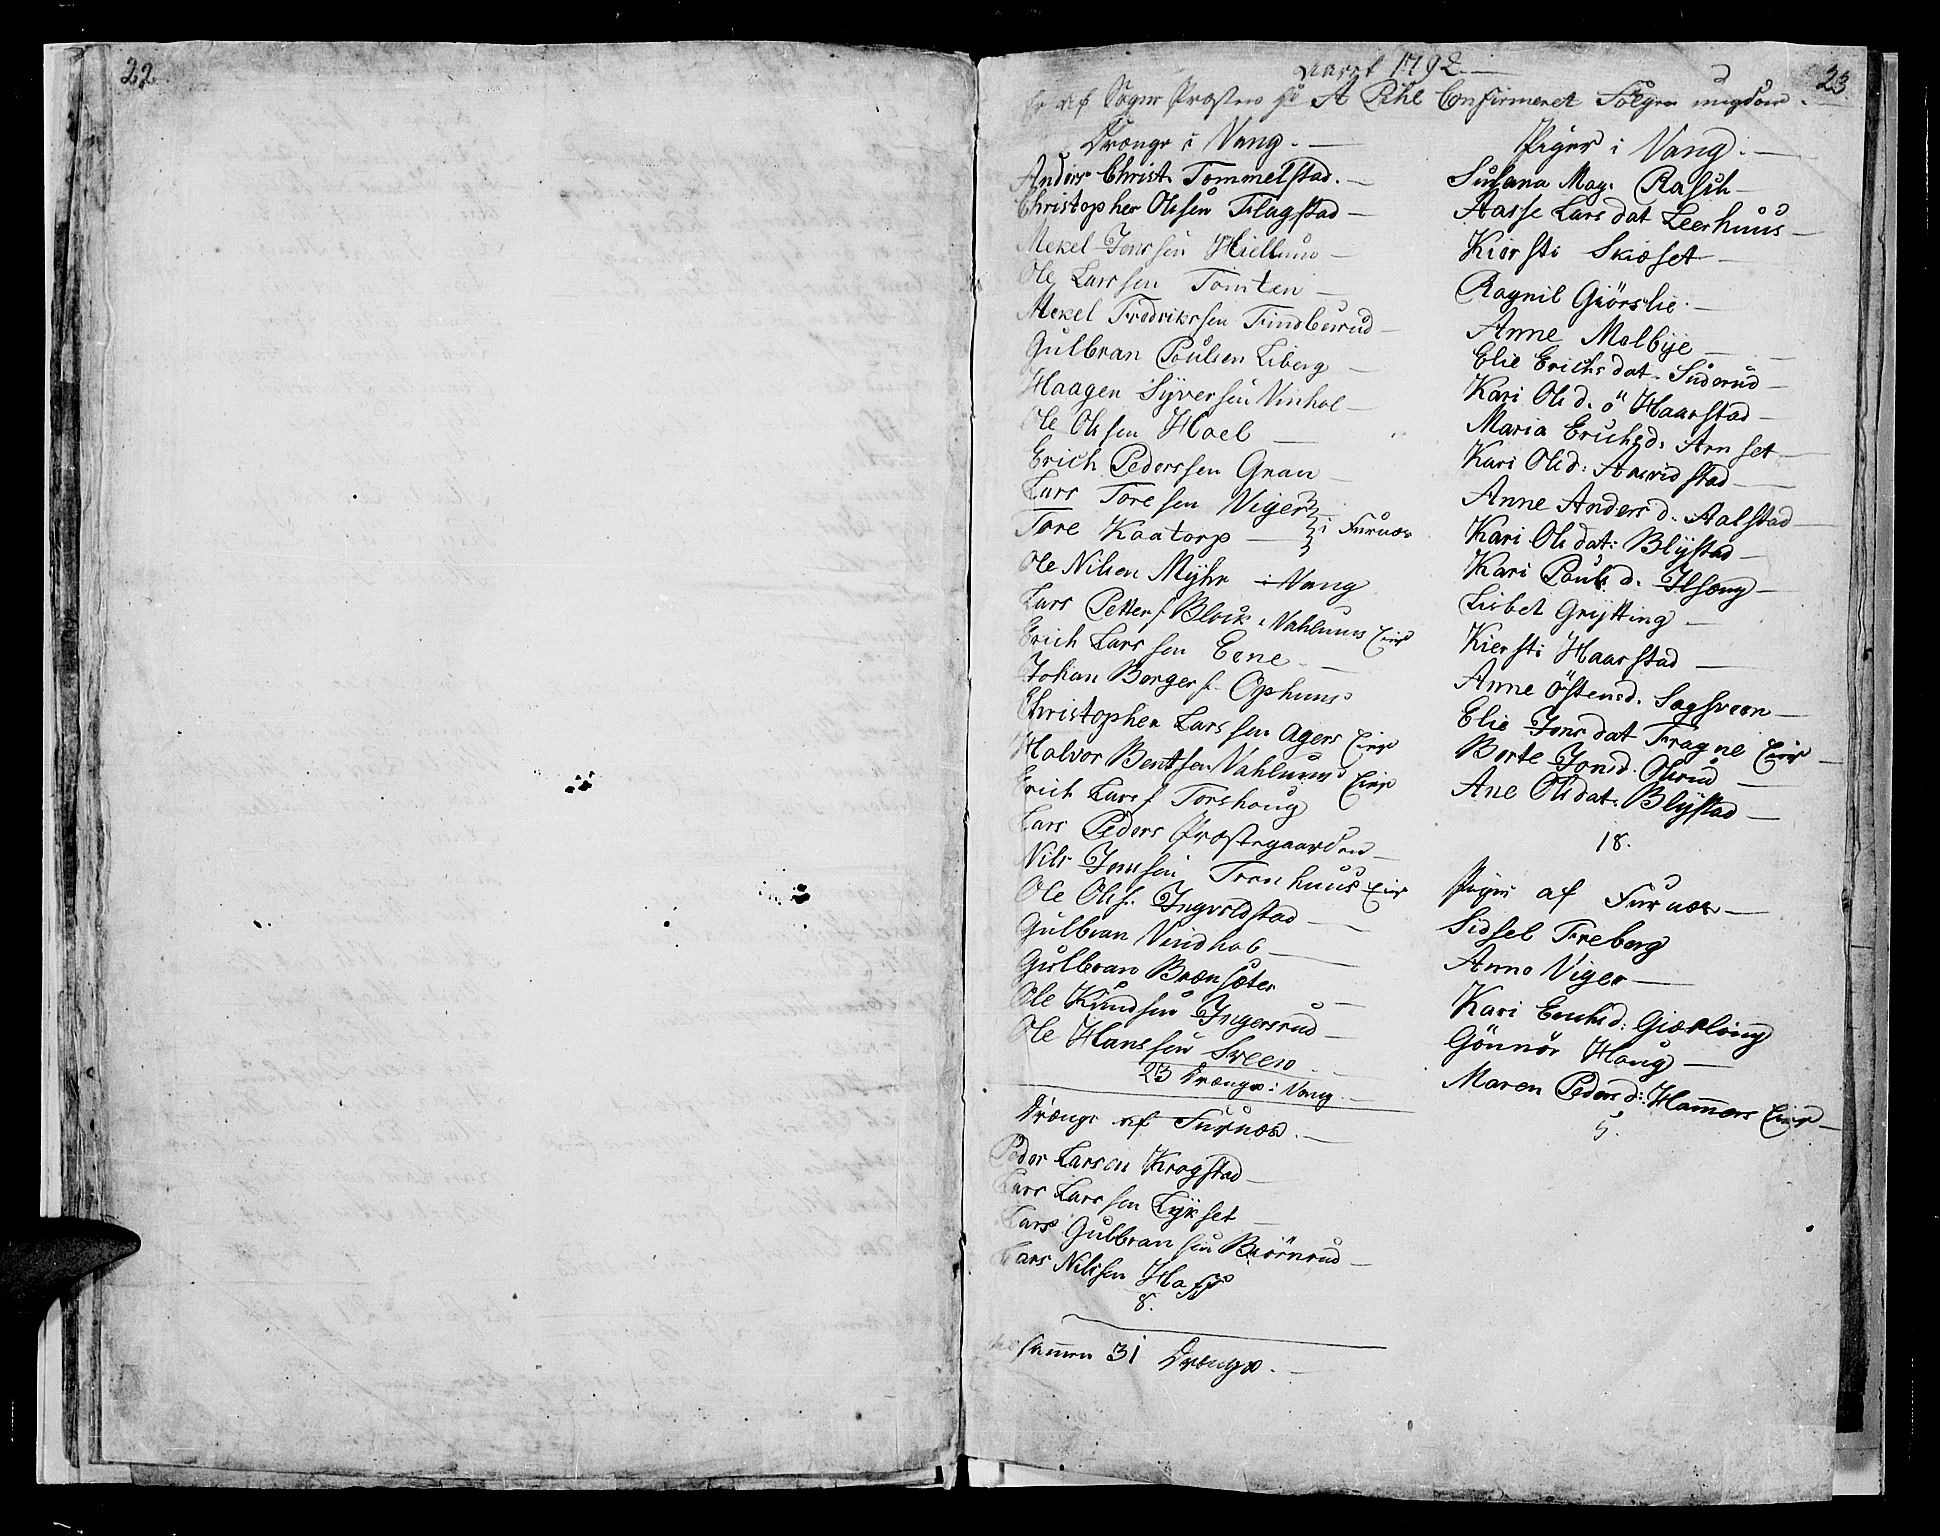 22
23
Aaret 1792.
Er af Sogne Præsten Hr A Pihl Confirmeret Følgen ungdom.
Drænge i Vang.
Anders Christ. Tommelstad.
Christopher Olssen Flagstad
Mekel Jenssen Hiellum
Ole Larssen Tomten
Mekel Fredrikssen Findberud
Gulbran Poulsen Liberg
Haagen Syversen Vinhol
Ole Olssen Hoel
Erich Pederssen Gran
Lars Toresen Viger
Tore Kaatorp i Furnæs
Ole Nilsen Myhr i Vang
Lars Petter s Block, Vahlums Eier
Erich Larssen Eene
Johan Borger s. Ophuus
Christopher Larssen Agers Eier
Halvor Bentsen Vahlums Eier
Erich Lars s Torshoug
Lars Peders Præstegaarden
Nils Jenssen Frenhuus Eier
Ole Ols s. Ingvoldstad
Gulbran Vindhol
Gulbran Brænsæter
Ole Knudsen Ingersrud
Ole Hanssen Sveen
23 Drænge i Vang
Drænge af Furnæs.
Peder Larsen Kragstad
Lars Larssen Lykset
Lars Gulbransen Biörnrud
Lars Nilssen Hoff
8.
sammen 31 Drænge.
Piger i Vang.
Susana Mag. Rasch
Aasse Larsdat Leerhuus
Kiersti Skiøset
Ragnil Giörslie
Anne Melbye
Elie Erichsdat. Suderud
Kari Ols d. ö Haarstad
Maria Erichsd. Arnset
Kari Olsd: Aarvidstad
Anne Anders d. Aalstad
Kari Olsdat: Blystad
Kari Pouls d. Ilseng
Lisbet Grytting
Kiersti Haarstad
Anne Östensd. Sagsveen
Elie Jensdat Frägne Eier
Berte Jonsd. Olsrud
Ane Olsdat. Blystad
18.
Piger af Furnæs
Sidsel Freberg
Anne Viger
Kari Erichsd: Giærlöug
Gönnör Houg
Maren Peders d: Hamers Eier
5.